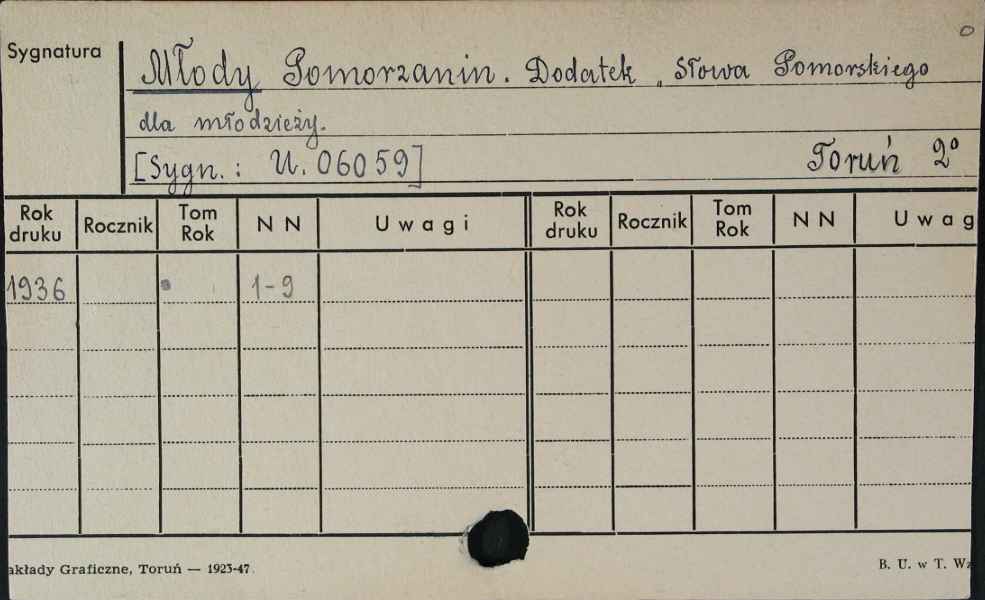 0
Sygnatura
Młody Pomorzanin. Dodatek „Słowa Pomorskiego
dla młodzieży.
[Sygn.: U. 06059] Toruń 2°
Rok druku Rocznik Tom Rok N N Uwagi Rok druku Rocznik Tom Rok N N Uwag
1936 1-9
akłady Graficzne, Toruń — 1923-47. B. U. w T. Wz